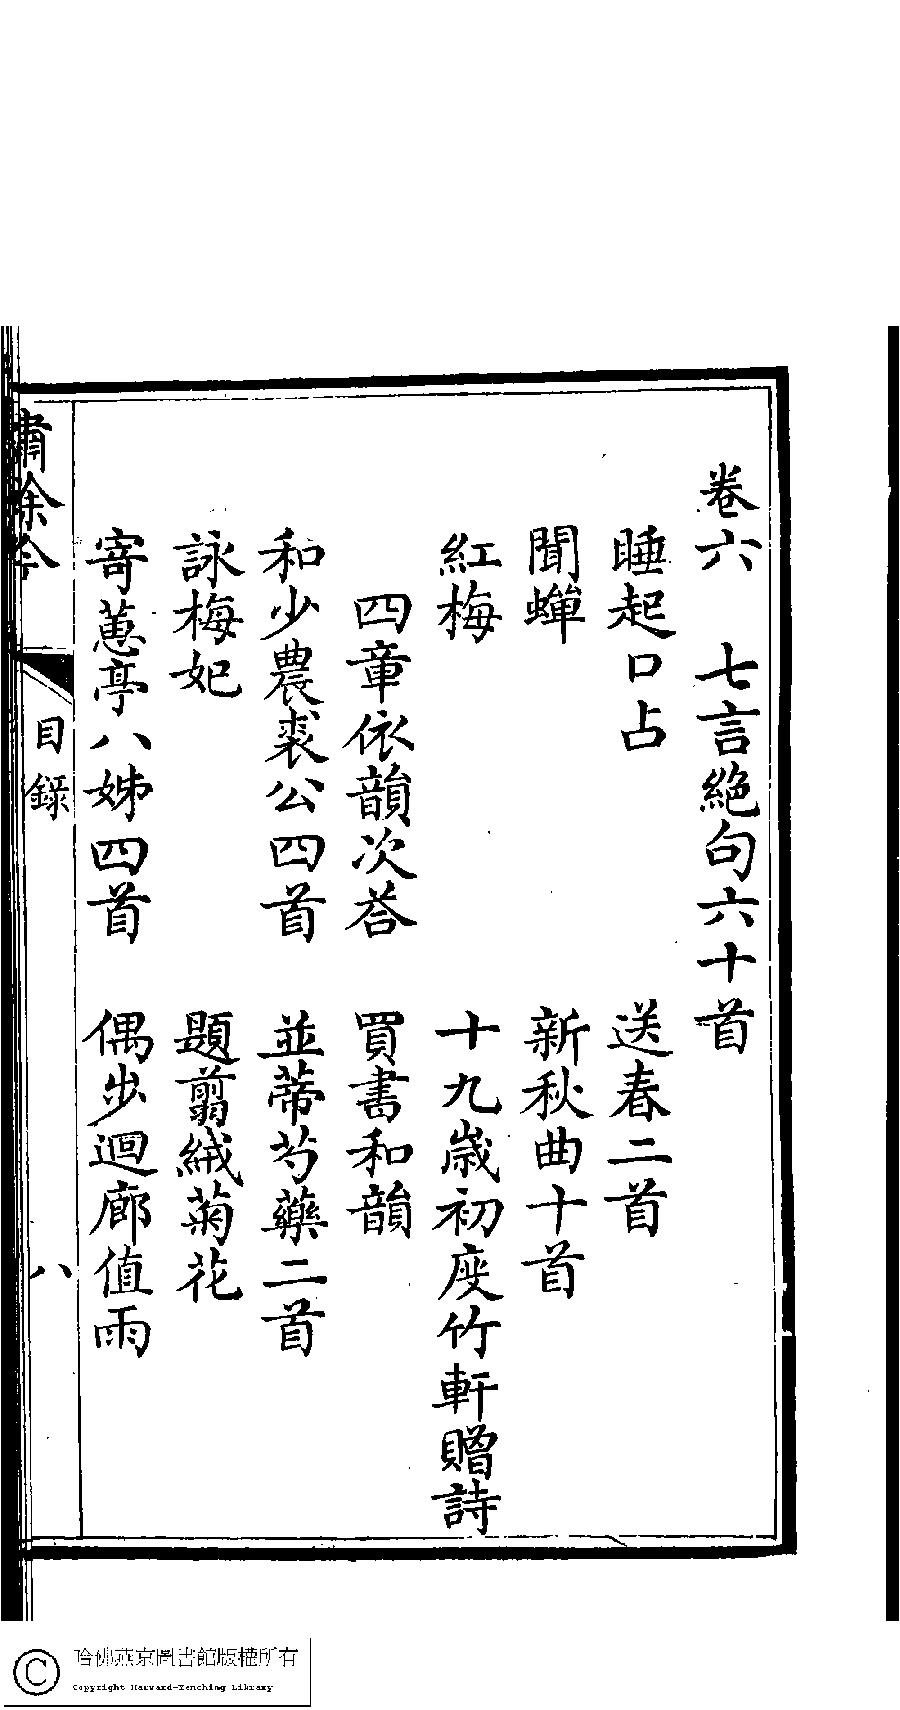 卷六　七言絕句六十首
睡起口占　送春二首
聞蟬　新秋曲十首
紅梅　十九歲初度竹軒贈詩
四章依韻次荅　買書和韻
和少農裘公四首　並蒂芍藥二首
詠梅妃　題翦絨菊花
寄蕙亭八姊四首　偶步迴廊值雨
繡餘吟
目錄
八
哈佛燕京圖書館版權所有
Copyright Harvard-Yenching Library